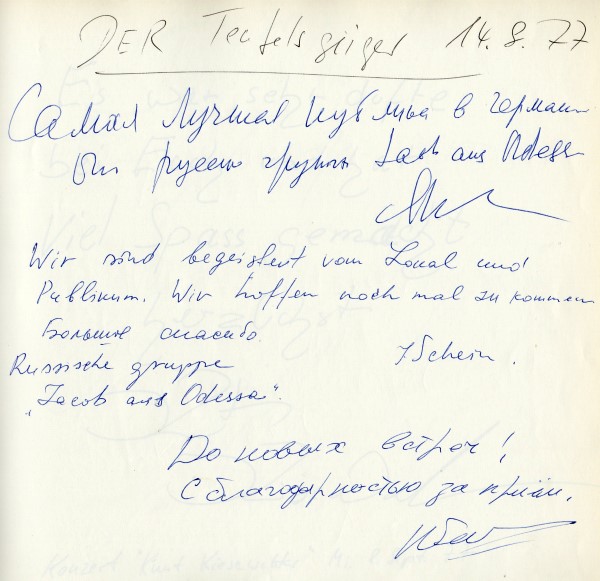 DER Teufelsgeiger 14.8.77
Самая Лучшая публика в германи
группы Jacob aus Odessa
Wir sind begeistert vom Lokal und
Publikum. Wir hoffen noch mal zu kommen
Большое спасибо
Russische gruppe
„Jacob aus Odessa“.
Schein.
До новых встреч!
С благодарностью за приём.